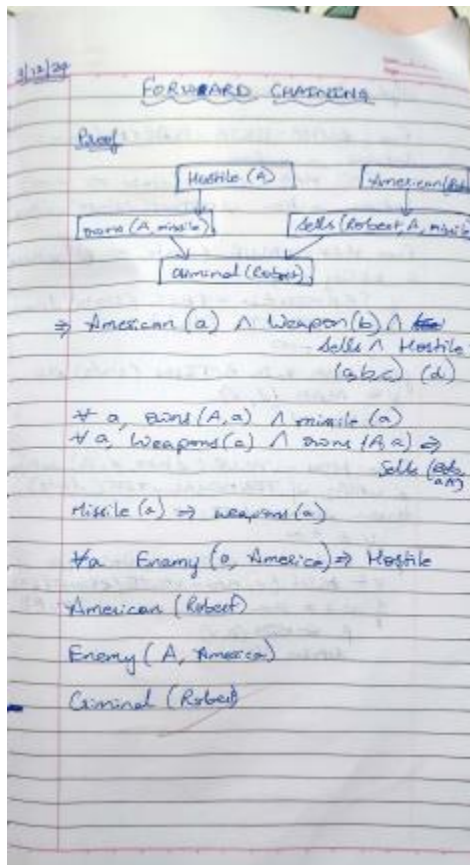 3/12/24
FORWARD CHAINING
Proof
Hostile (A) American (Rob
owns (A, missile) Sells (Robert, A, missile
Criminal (Robert)
⇒ American (a) ∧ Weapon (b) ∧
Sells ∧ Hostile
(a,b,c) (d)
∀ a, owns (A, a) ∧ missile (a)
∀ a, Weapons (a) ∧ owns (A, a) ⇒
Sells (
a A)
Missile (a) ⇒ weapons (a)
∀a Enemy (a, America) ⇒ Hostile
American (Robert)
Enemy (A, America)
Criminal (Robert)